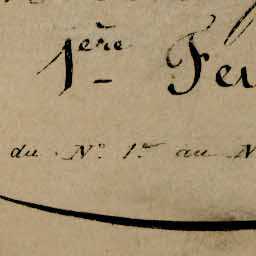 1ère Feu
du N° 1er au N